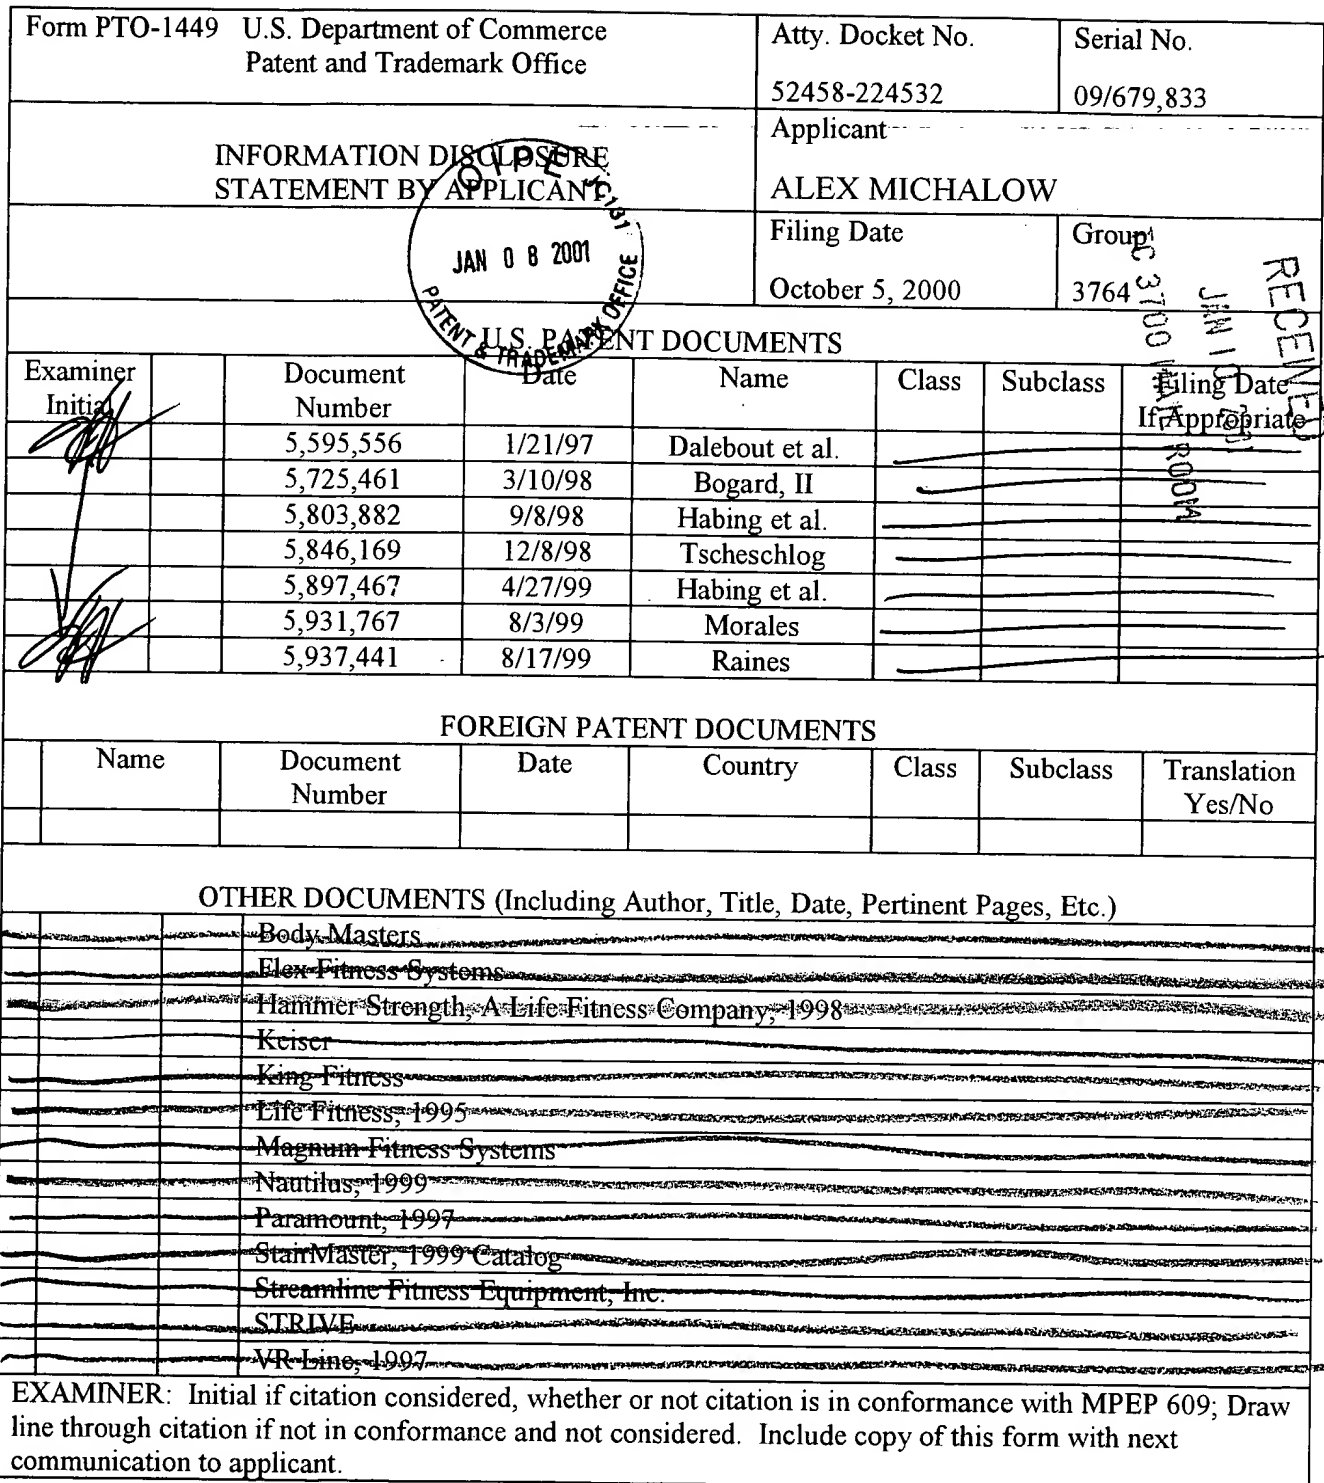 Form PTO-1449 U.S. Department of Commerce
Patent and Trademark Office
Atty. Docket No.
52458-224532
Serial No.
09/679,833
INFORMATION DISCLOSURE
STATEMENT BY APPLICANT
Applicant
ALEX MICHALOW
Filing Date
October 5, 2000
Group
3764
OIPE JC131
JAN 08 2001
PATENT & TRADEMARK OFFICE
RECEIVED
JAN 10 2001
TC 3700 MAIL ROOM
U.S. PATENT DOCUMENTS
Examiner Initial Document Number Date Name Class Subclass Filing Date If Appropriate
5,595,556 1/21/97 Dalebout et al.
5,725,461 3/10/98 Bogard, II
5,803,882 9/8/98 Habing et al.
5,846,169 12/8/98 Tscheschlog
5,897,467 4/27/99 Habing et al.
5,931,767 8/3/99 Morales
5,937,441 8/17/99 Raines
FOREIGN PATENT DOCUMENTS
Name Document Number Date Country Class Subclass Translation Yes/No
OTHER DOCUMENTS (Including Author, Title, Date, Pertinent Pages, Etc.)
Body Masters
Flex Fitness Systems
Hammer Strength, A Life Fitness Company, 1998
Keiser
King Fitness
Life Fitness, 1995
Magnum Fitness Systems
Nautilus, 1999
Paramount, 1997
StairMaster, 1999 Catalog
Streamline Fitness Equipment, Inc.
STRIVE
VR Line, 1997
EXAMINER: Initial if citation considered, whether or not citation is in conformance with MPEP 609; Draw
line through citation if not in conformance and not considered. Include copy of this form with next
communication to applicant.